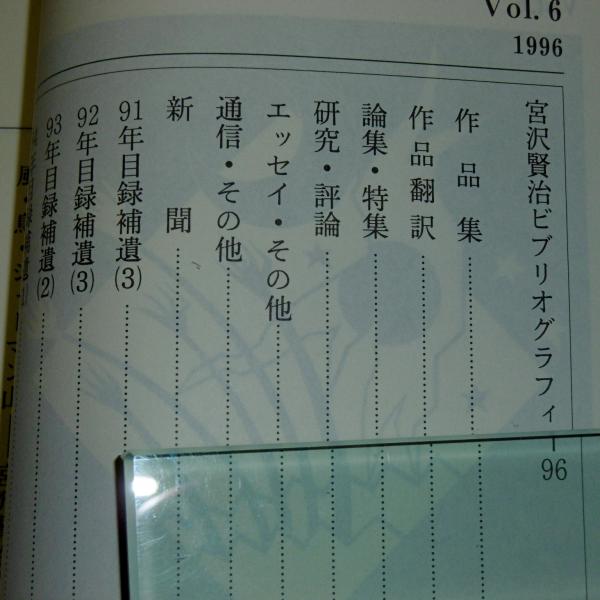 Vol. 6
1996
宮沢賢治ビブリオグラフィー96
作品集
作品翻訳
論集・特集
研究・評論
エッセイ・その他
通信・その他
新聞
91年目録補遺(3)
92年目録補遺(3)
93年目録補遺(2)